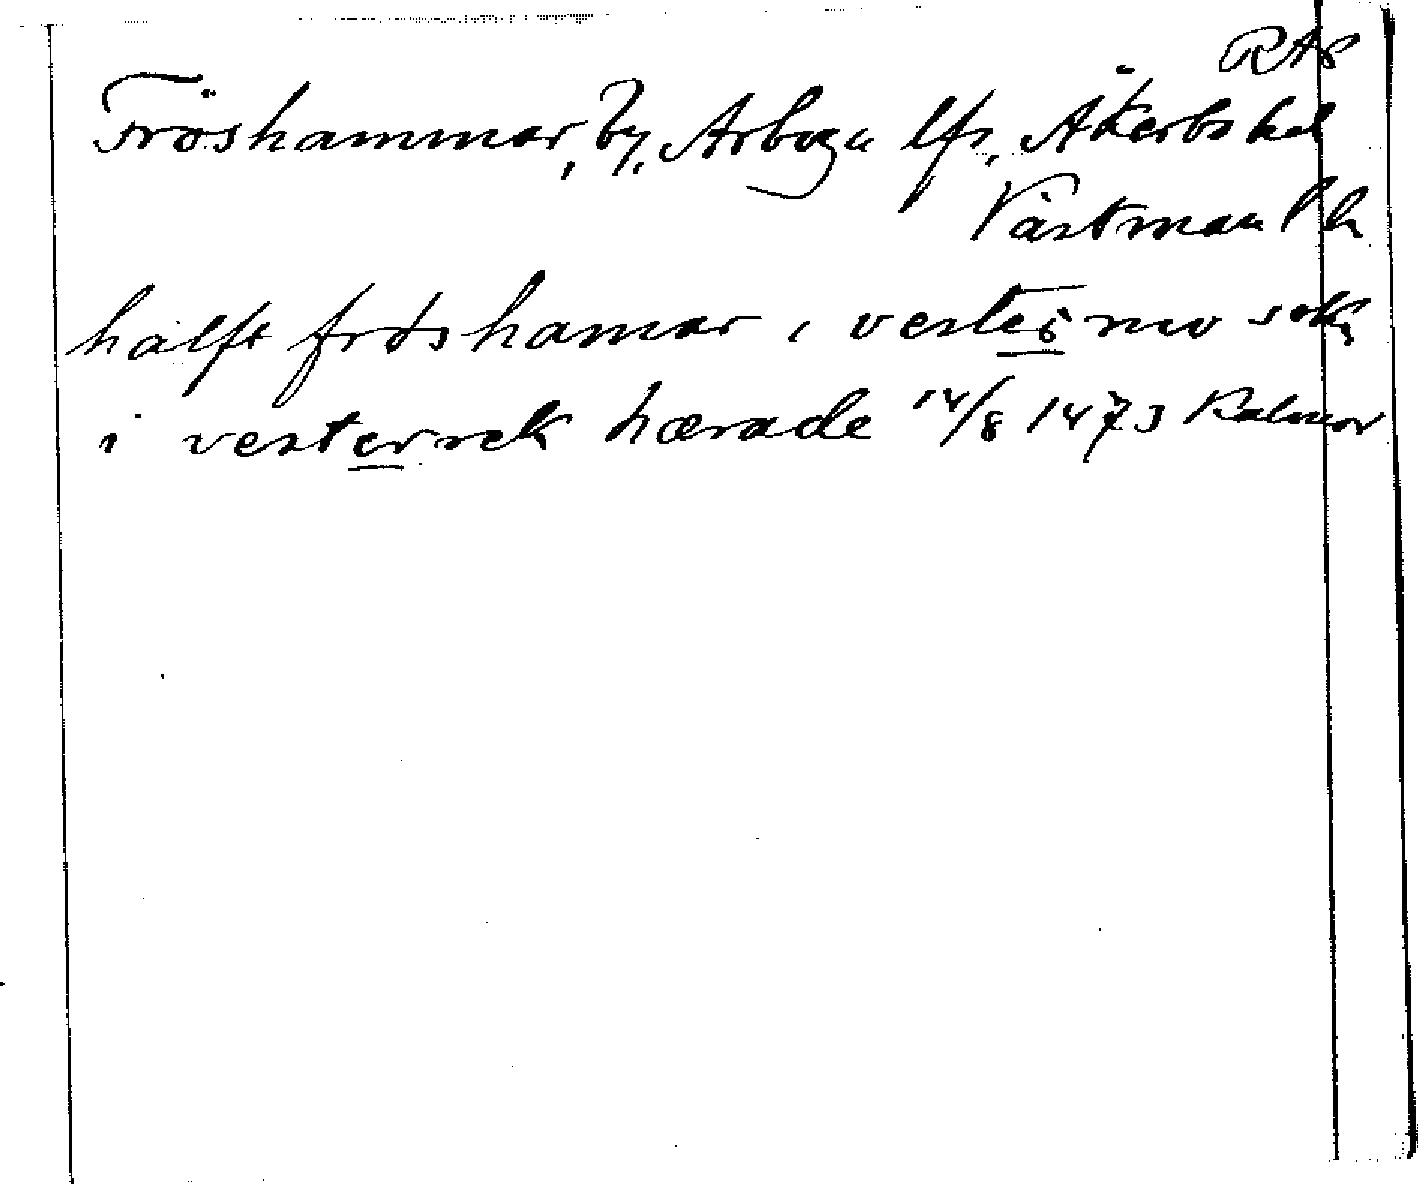 RAP
Fröshammar, by, Arboga lfs, Åkerbo hd
Västmanl l
halft frøshamar i vestermo sokn
i vesterrek hærade 14/8 1473 Kalmar